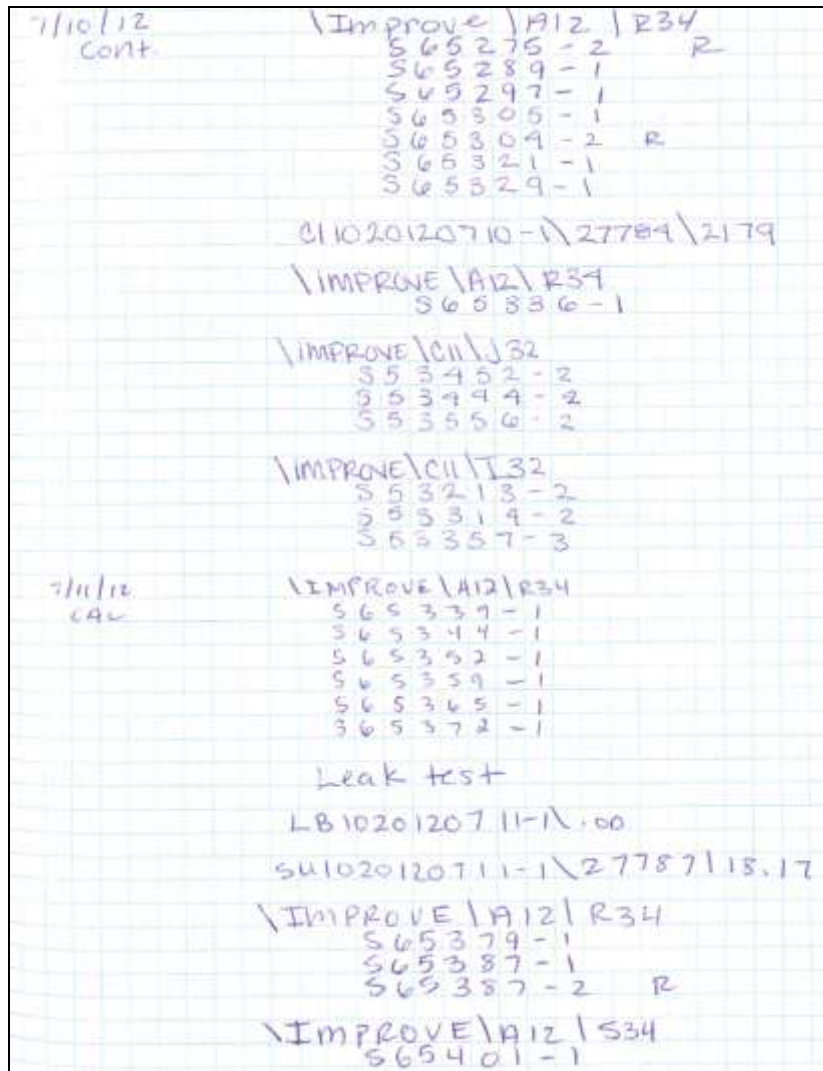 7/10/12 \Improve\A12\R34
Cont.
S65275-2 R
S65289-1
S65297-1
S65305-1
S65309-2 R
S65321-1
S65329-1
CI1020120710-1\27784\2179
\IMPROVE\A12\R34
S65336-1
\IMPROVE\C11\J32
S53452-2
S53444-2
S53556-2
\IMPROVE\C11\I32
S53213-2
S53314-2
S53357-3
7/11/12 \IMPROVE\A12\R34
CAL
S65339-1
S65344-1
S65352-1
S65359-1
S65365-1
S65372-1
Leak test
LB1020120711-1\.00
SU1020120711-1\27787\18.17
\IMPROVE\A12\R34
S65379-1
S65387-1
S65387-2 R
\IMPROVE\A12\S34
S65401-1